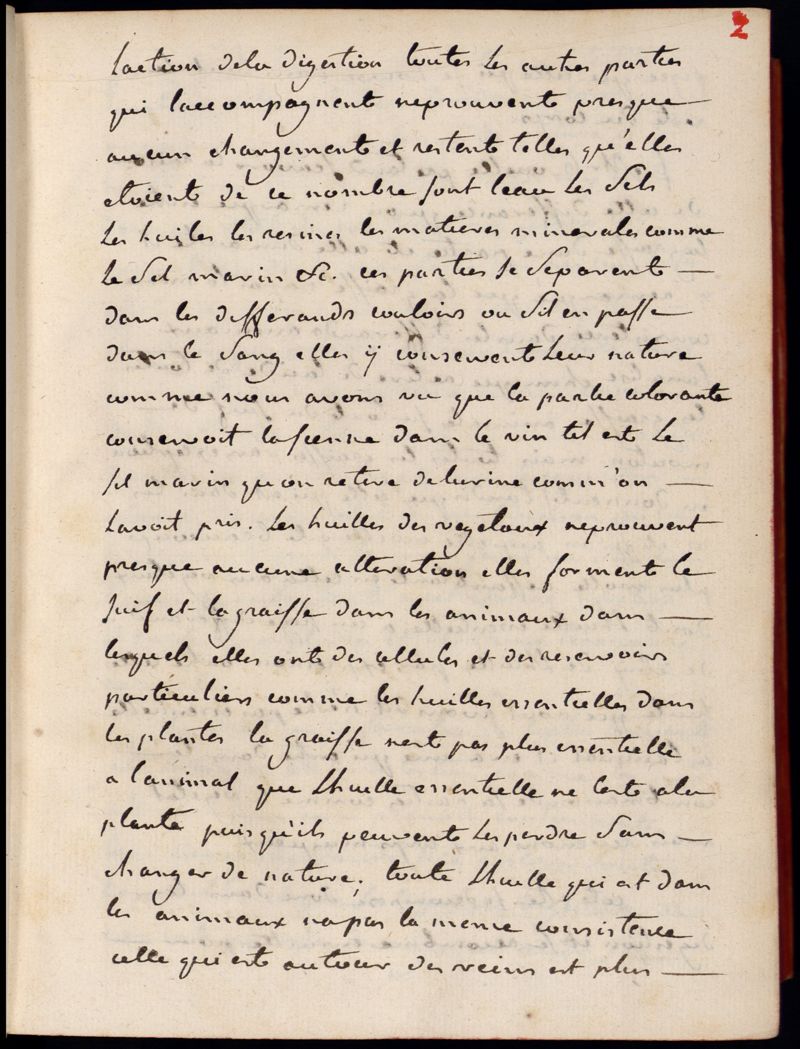 2
laction dela digestion toutes les autres parties
qui laccompagnent neprouvents presque
aucun changements et restents telles qu'elles
etoients de ce nombre sont leau les sels
les huiles les resines les matieres minerales comme
le sel marin &c. ces parties se separents
dans les differands couloirs ou sil en passe
dans le sang elles ÿ conservents leur nature
comme nous avons vu que la partie colorante
conservoit la sienne dans le vin tel est le
sel marin qu'on retire delurine comm'on
lavoit pris. les huilles des vegetaux neprouvent
presque aucune alteration elles forments le
suif et la graisse dans les animaux dans
lesquels elles onts des cellules et des reservoirs
particuliers comme les huilles essentielles dans
les plantes la graisse nests pas plus essentielle
a lanimal que Lhuille essentielle ne lests ala
plante puisqu'ils peuvents les perdre sans
changer de nature; toute Lhuille qui est dans
les animaux na pas la meme consistence
celle qui ests autour des reins est plus